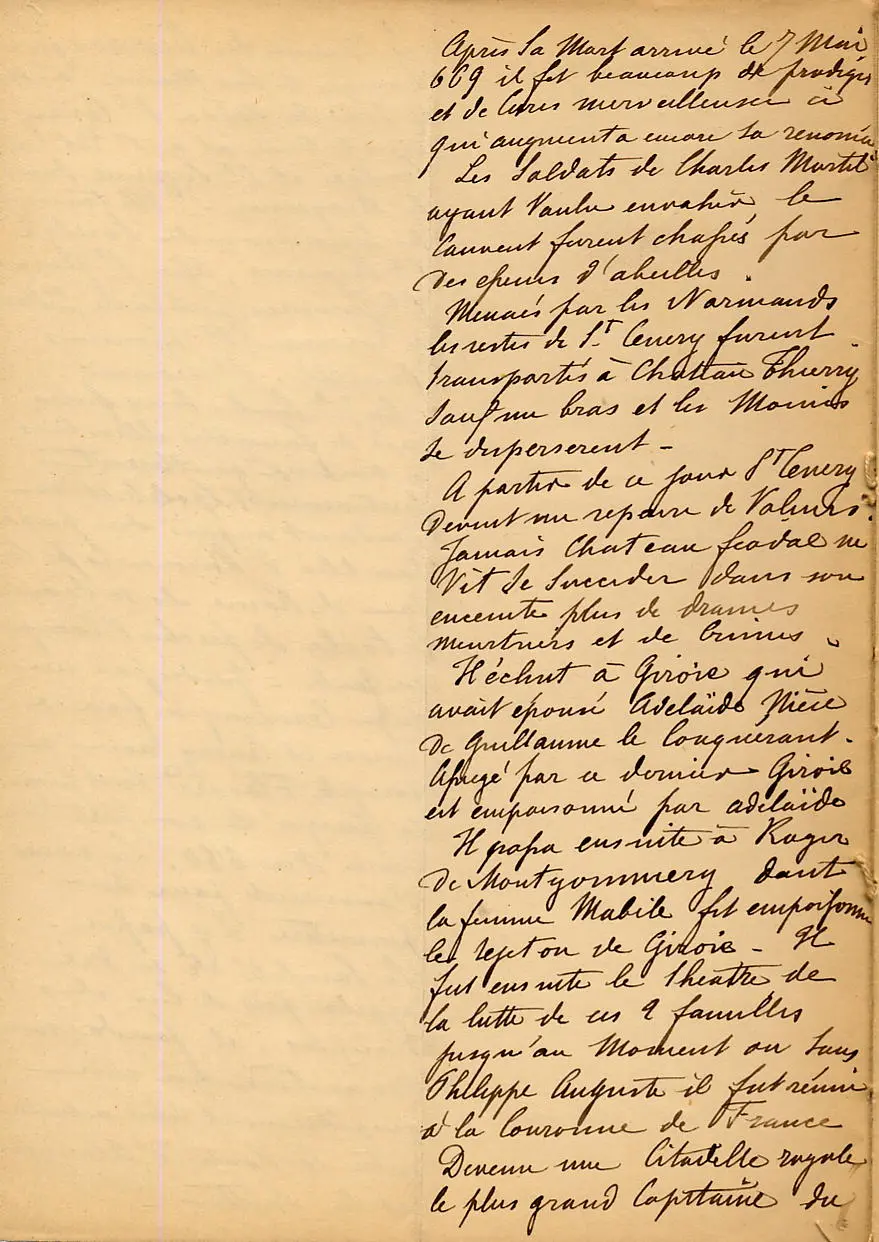 Après sa Mort arrivé le 7 Mai
669 il fit beaucoup de prodiges
et de Cures merveilleuses ce
qui augmenta encore sa renomée
Les Soldats de Charles Martel
ayant Voulu envahir le
Couvent furent chassés par
des essaims d'abeilles.
Menacés par les Normands
les restes de St Cenery furent
transportés à Chateau Thierry
sauf un bras et les Moines
se disperserent -
A partir de ce jour St Cenery
devint un repaire de Voleurs.
Jamais Chateau féodal ne
Vit se Succeder dans son
enceinte plus de drames
meurtriers et de Crimes.
Il échut à Giroie qui
avait épousé Adelaïde Nièce
de Guillaume le Conquérant.
Assiegé par ce dernier Giroie
est empoisonné par adelaïde
Il passa ensuite à Roger
de Montgommery dont
la femme Mabile fit empoisonner
le rejeton de Giroie - Il
fut ensuite le Theatre de
la lutte de ces 2 familles
jusqu'au Moment ou sous
Philippe Auguste il fut réuni
à la Couronne de France
Devenu une Citadelle royale
le plus grand Capitaine du